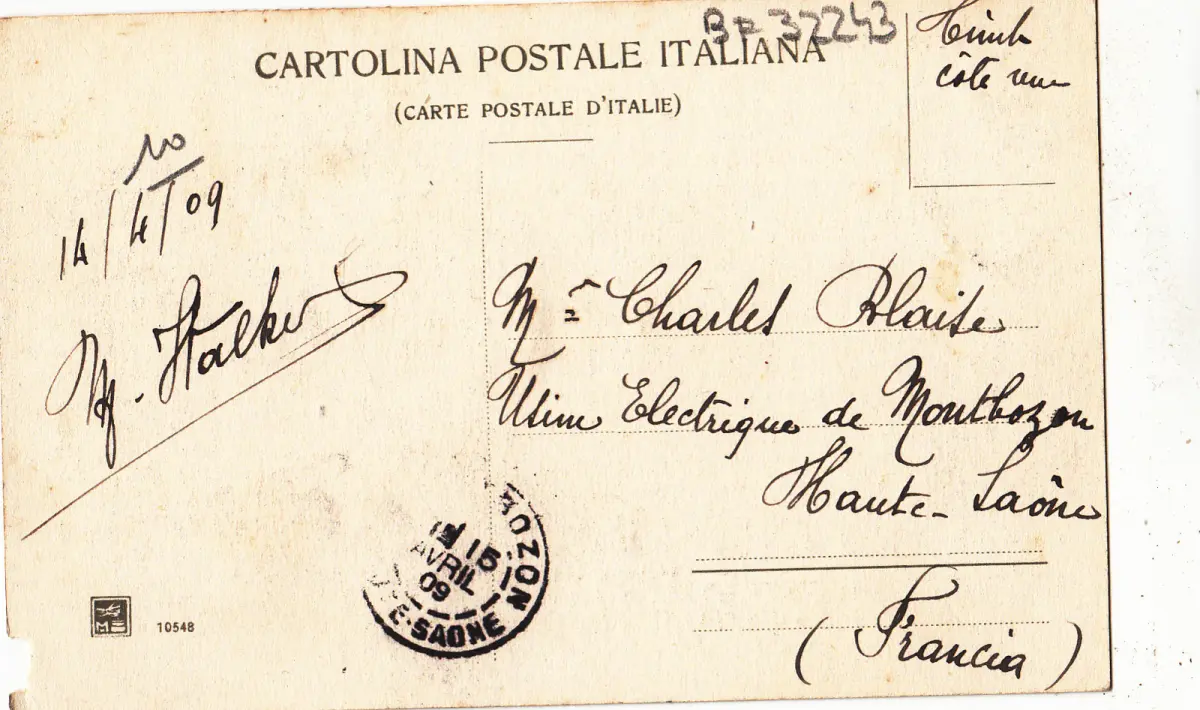 BR 32243
CARTOLINA POSTALE ITALIANA
(CARTE POSTALE D'ITALIE)
Timb
côté vue
10
14/4/09
M. Stalker
Mr Charles Blaise
Usine Electrique de Montbozon
Haute-Saône
(Francia)
BOZON
15
AVRIL
09
TE-SAONE
10548